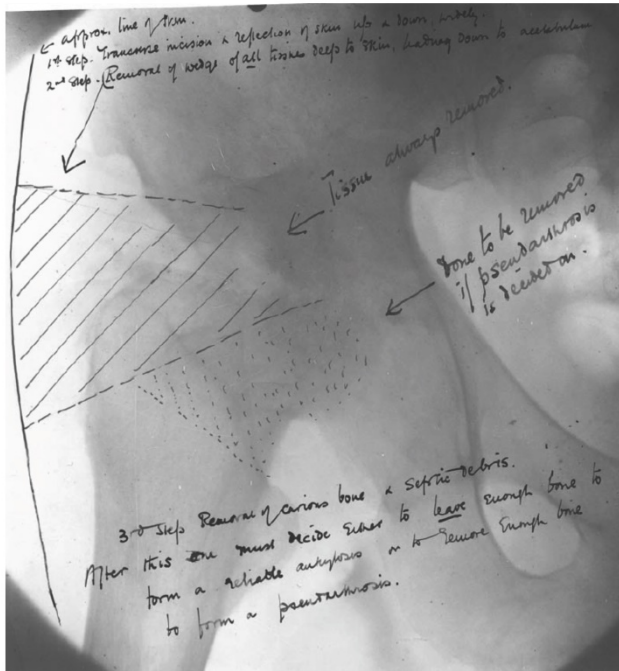 approx. line of skin.
1st step. Transverse incision & reflection of skin up & down, widely.
2nd step. Removal of wedge of all tissues deep to skin, leading down to acetabulum
Tissue always removed.
bone to be removed
if pseudarthrosis
is decided on.
3rd step Removal of carious bone & septic debris.
After this one must decide either to leave enough bone to
form a reliable ankylosis or to remove enough bone
to form a pseudarthrosis.